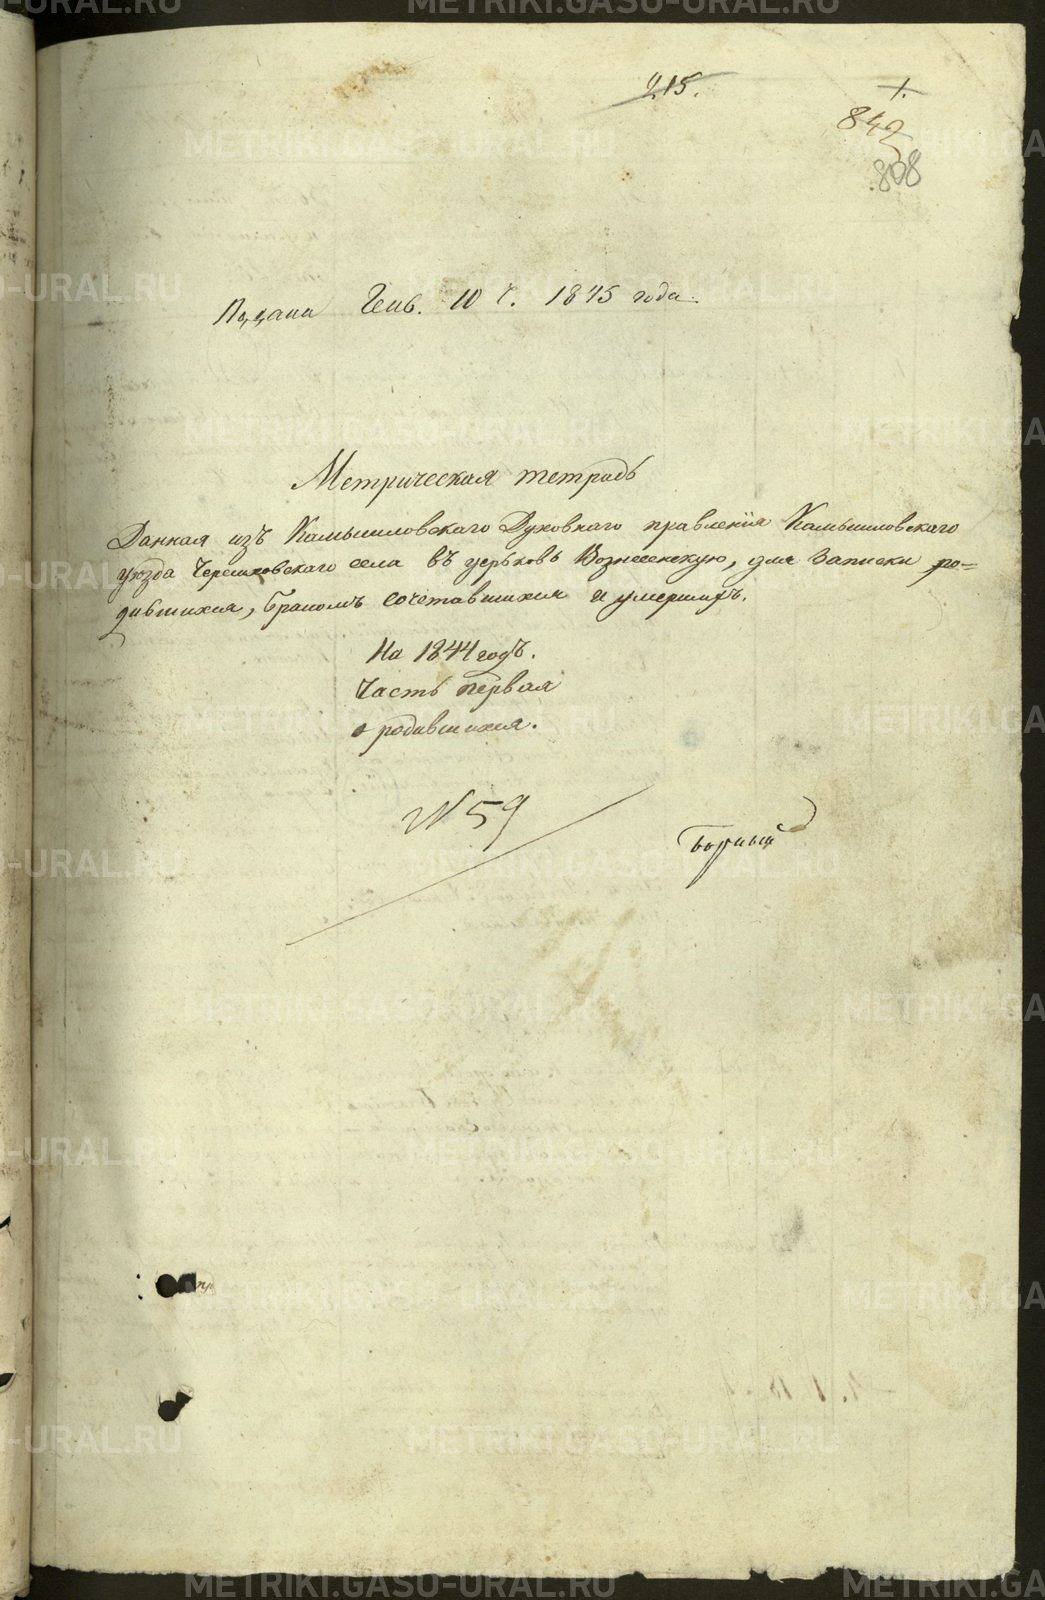 215.
1.
842
808
Подана Генв. 10 ч. 1845 года.
Метрическая тетрадь
Данная изъ Камышловскаго Духовнаго правленія Камышловскаго
уѣзда Черемховскаго села въ церковь Вознесенскую, для записки ро=
дившихся, бракомъ сочетавшихся и умершихъ.
На 1844 годъ.
Часть первая
о родившихся.
№ 59